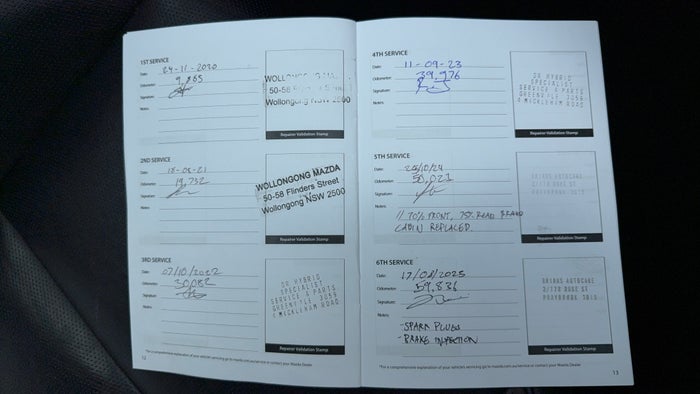 1ST SERVICE
Date: 24-11-2020
Odometer: 9,885
Signature:
Notes:
WOLLONGONG MAZDA
50-58
Wollongong NSW 2500
Repairer Validation Stamp
2ND SERVICE
Date: 18-08-21
Odometer: 19,732
Signature:
Notes:
WOLLONGONG MAZDA
50-58 Flinders Street
Wollongong NSW 2500
Repairer Validation Stamp
3RD SERVICE
Date: 07/10/2022
Odometer: 30,082
Signature:
Notes:
DR HYBRID
SPECIALIST
SERVICE & PARTS
GREENVALE 3059
MICKLEHAM ROAD
Repairer Validation Stamp
*For a comprehensive explanation of your vehicle's servicing go to mazda.com.au/service or contact your Mazda Dealer
12
4TH SERVICE
Date: 11-09-23
Odometer: 39,976
Signature:
Notes:
DR HYBRID
SPECIALIST
SERVICE & PARTS
GREENVALE 3059
MICKLEHAM ROAD
Repairer Validation Stamp
5TH SERVICE
Date: /10/24
Odometer: 50,021
Signature:
Notes:
70% FRONT, 75% REAR BRAKE
CABIN REPLACED.
AUTOCARE
DUKE ST
Repairer Validation Stamp
6TH SERVICE
Date: 17/04/2025
Odometer: 59,836
Signature:
Notes:
-SPARK PLUGS
-BRAKE INSPECTION
AUTOCARE
2/170 DUKE ST
BRAYBROOK 3019
Repairer Validation Stamp
*For a comprehensive explanation of your vehicle's servicing go to mazda.com.au/service or contact your Mazda Dealer
13